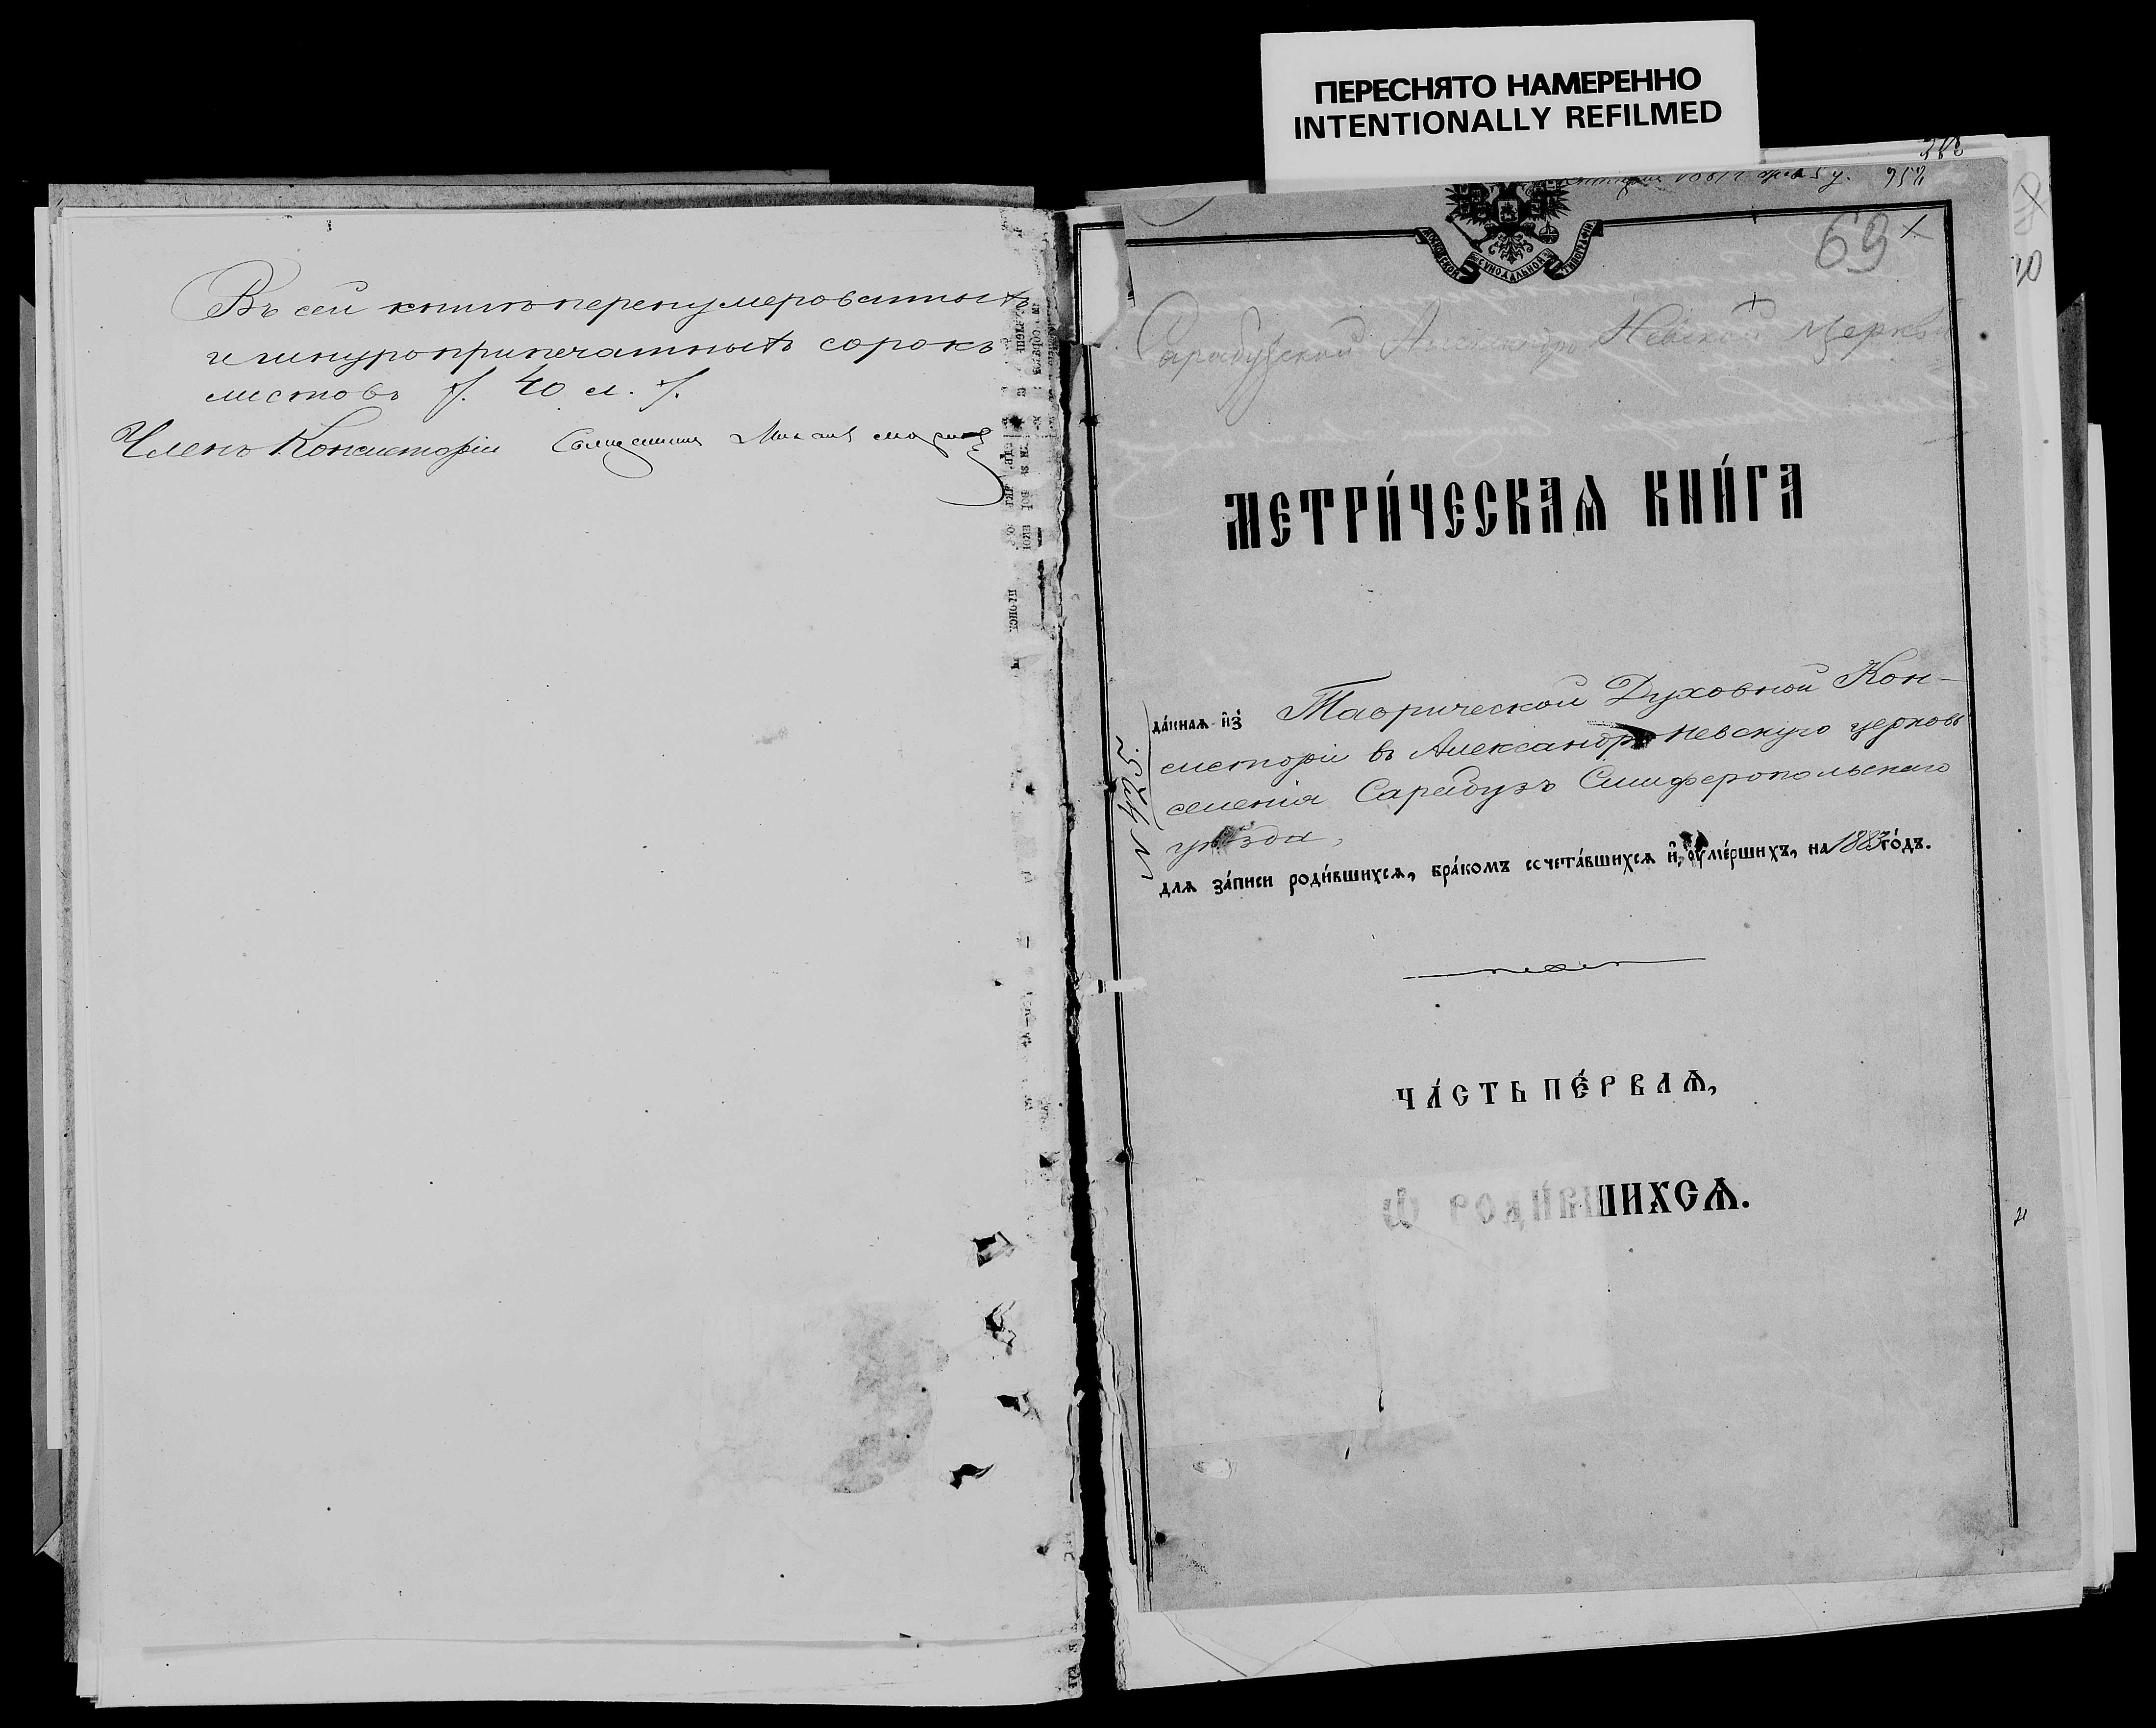 ПЕРЕСНЯТО НАМЕРЕННО
INTENTIONALLY REFILMED
Въ сей книгѣ перенумерованныхъ
и шнуроприпечатныхъ сорокъ
листовъ /. 40 л. /.
Членъ Консисторіи Священникъ Михаилъ
263
957
69
МОСКОВСКОЙ СѴНОДАЛЬНОЙ ТИПОГРАФІИ
Сарабузской Александро Невской церкви
МЕТРИ́ЧЕСКАѦ КНИ́ГА
да́ннаѧ и҆з̾ Таврической Духовной Кон-
систоріи въ Александро Невскую церковь
селенія Сарабузъ Симферопольскаго
уѣзда,
длѧ за́писи роди́вшихсѧ, бра́комъ сочета́вшихсѧ и҆ ᲂу҆ме́ршихъ, на 1883 го́дъ.
ЧА́СТЬ ПЕ́РВАѦ,
Ѽ РОДИ́ВШИХСѦ.